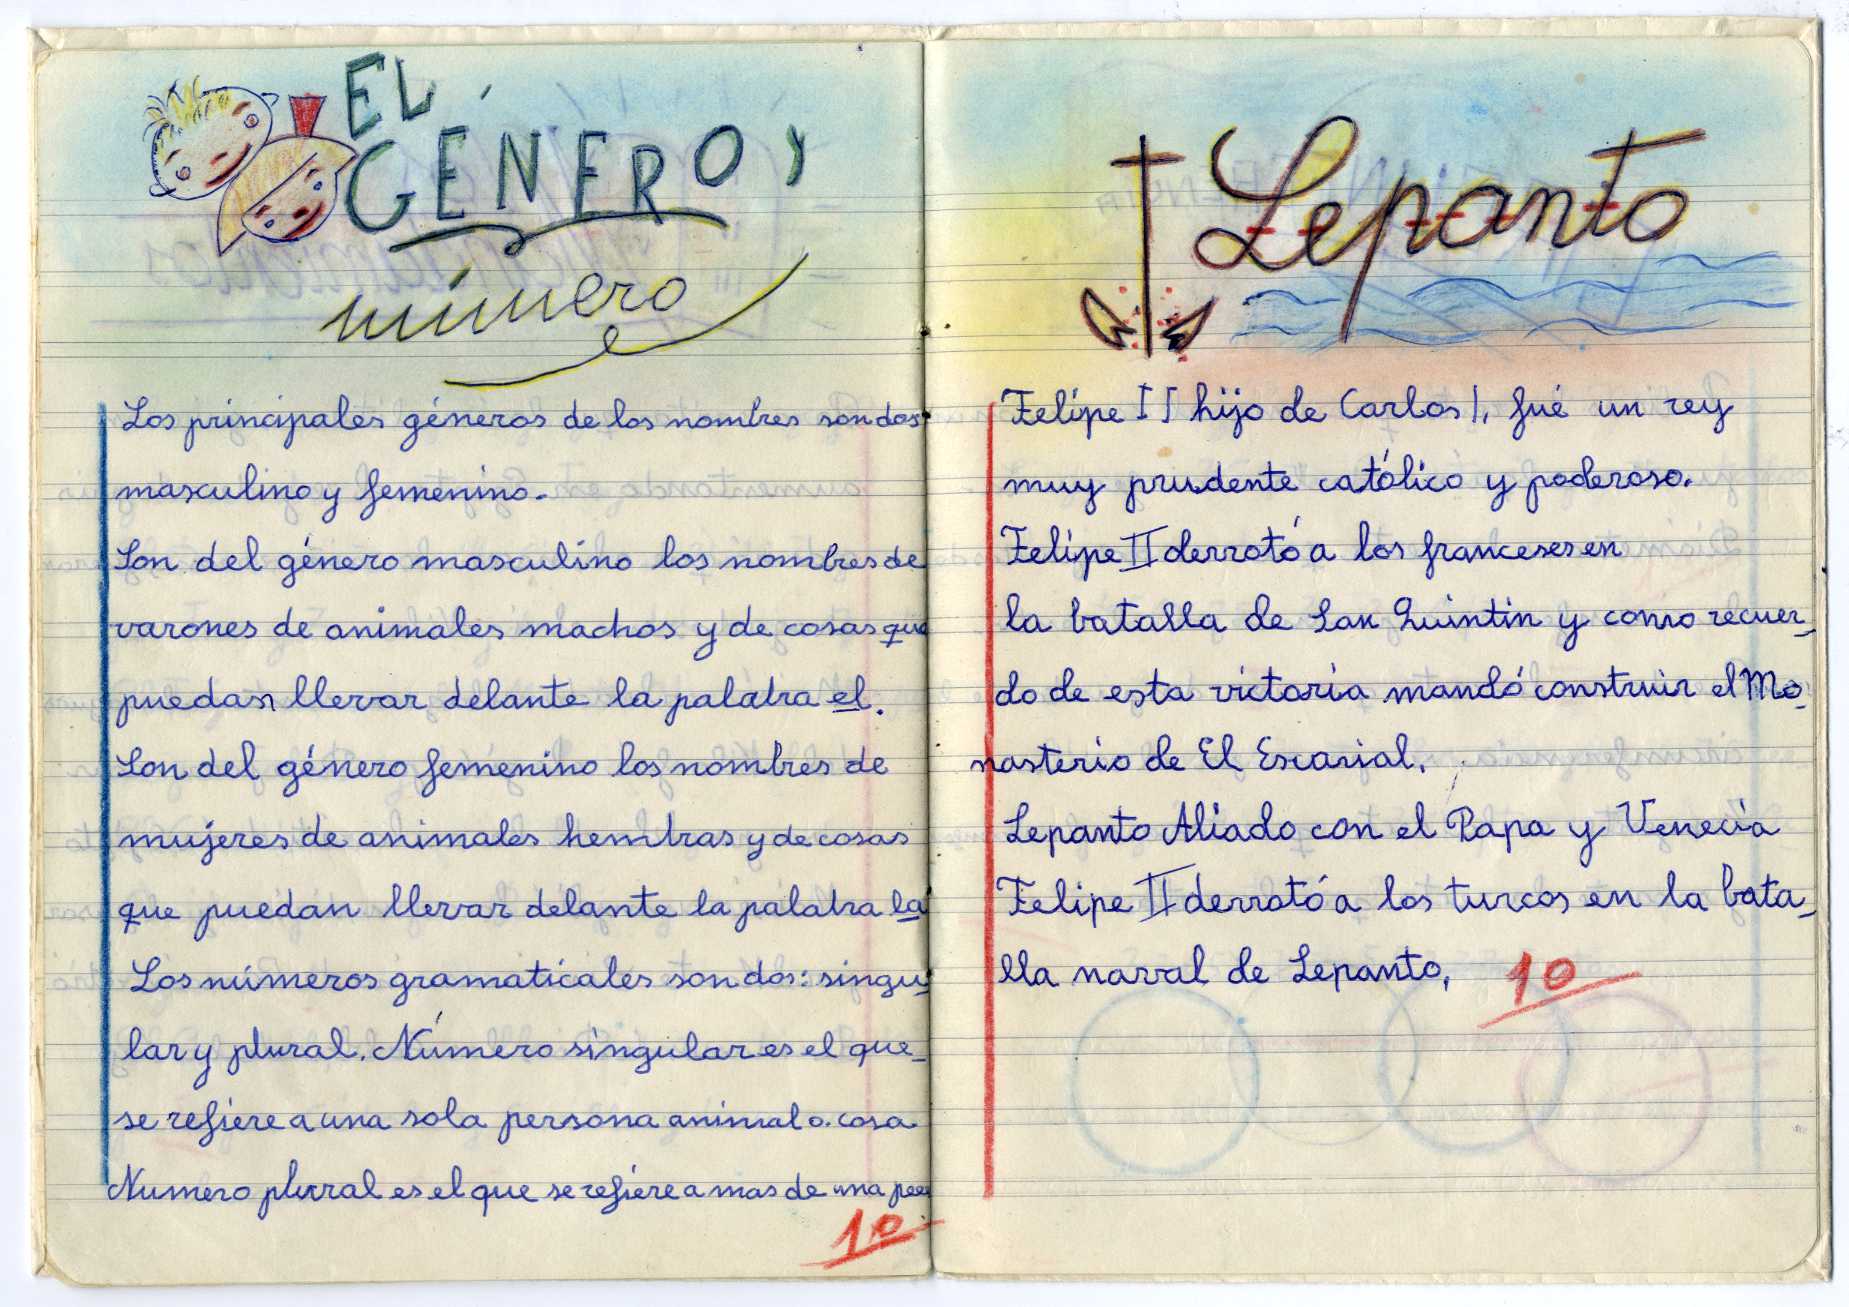 EL
GÉNERO Y
número
Los principales géneros de los nombres son dos
masculino y femenino.
Son del género masculino los nombres de
varones de animales machos y de cosas que
puedan llevar delante la palabra el.
Son del género femenino los nombres de
mujeres de animales hembras y de cosas
que puedan llevar delante la palabra la
Los números gramaticales son dos: singu-
lar y plural. Número singular es el que
se refiere a una sola persona animal o cosa
Numero plural es el que se refiere a mas de una
10
Lepanto
Felipe II hijo de Carlos I, fué un rey
muy prudente católico y poderoso.
Felipe II derrotó a los franceses en
la batalla de San Quintín y como recuer-
do de esta victoria mandó construir el Mo-
nasterio de El Escorial.
Lepanto Aliado con el Papa y Venecia
Felipe II derrotó a los turcos en la bata-
lla naval de Lepanto,
10